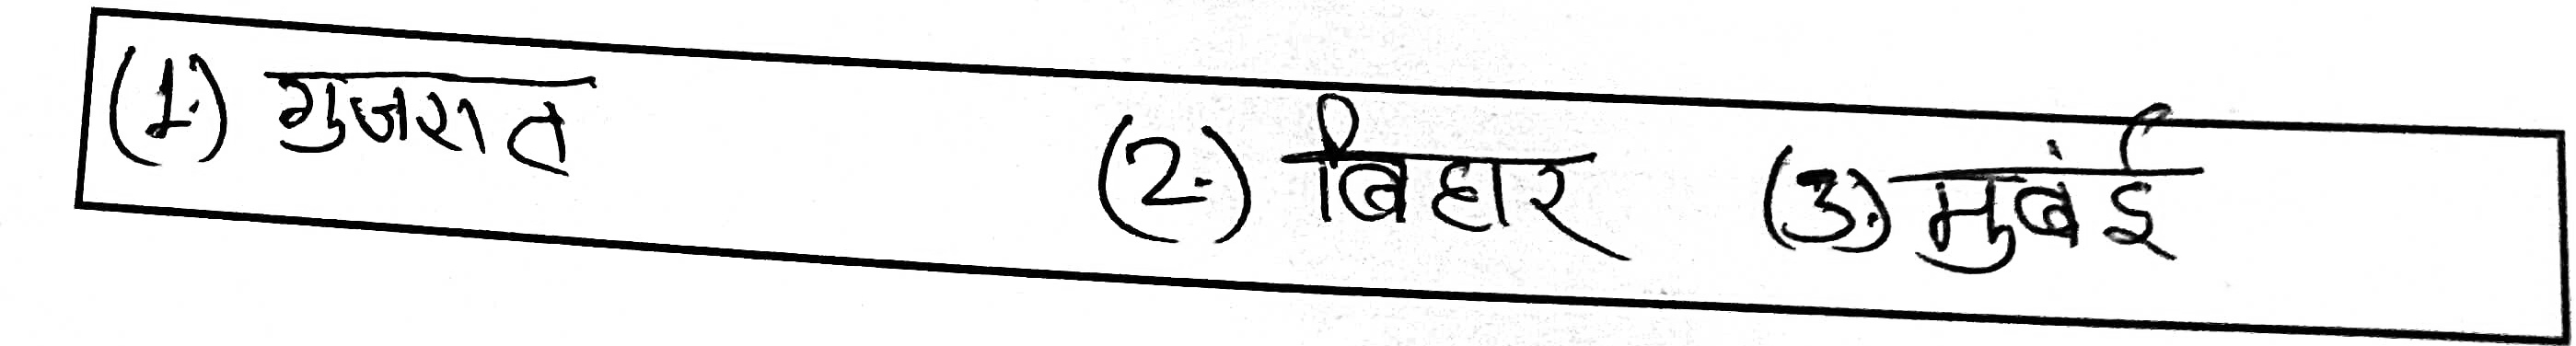 (1.) गुजरात (2.) बिहार (3.) मुबंई